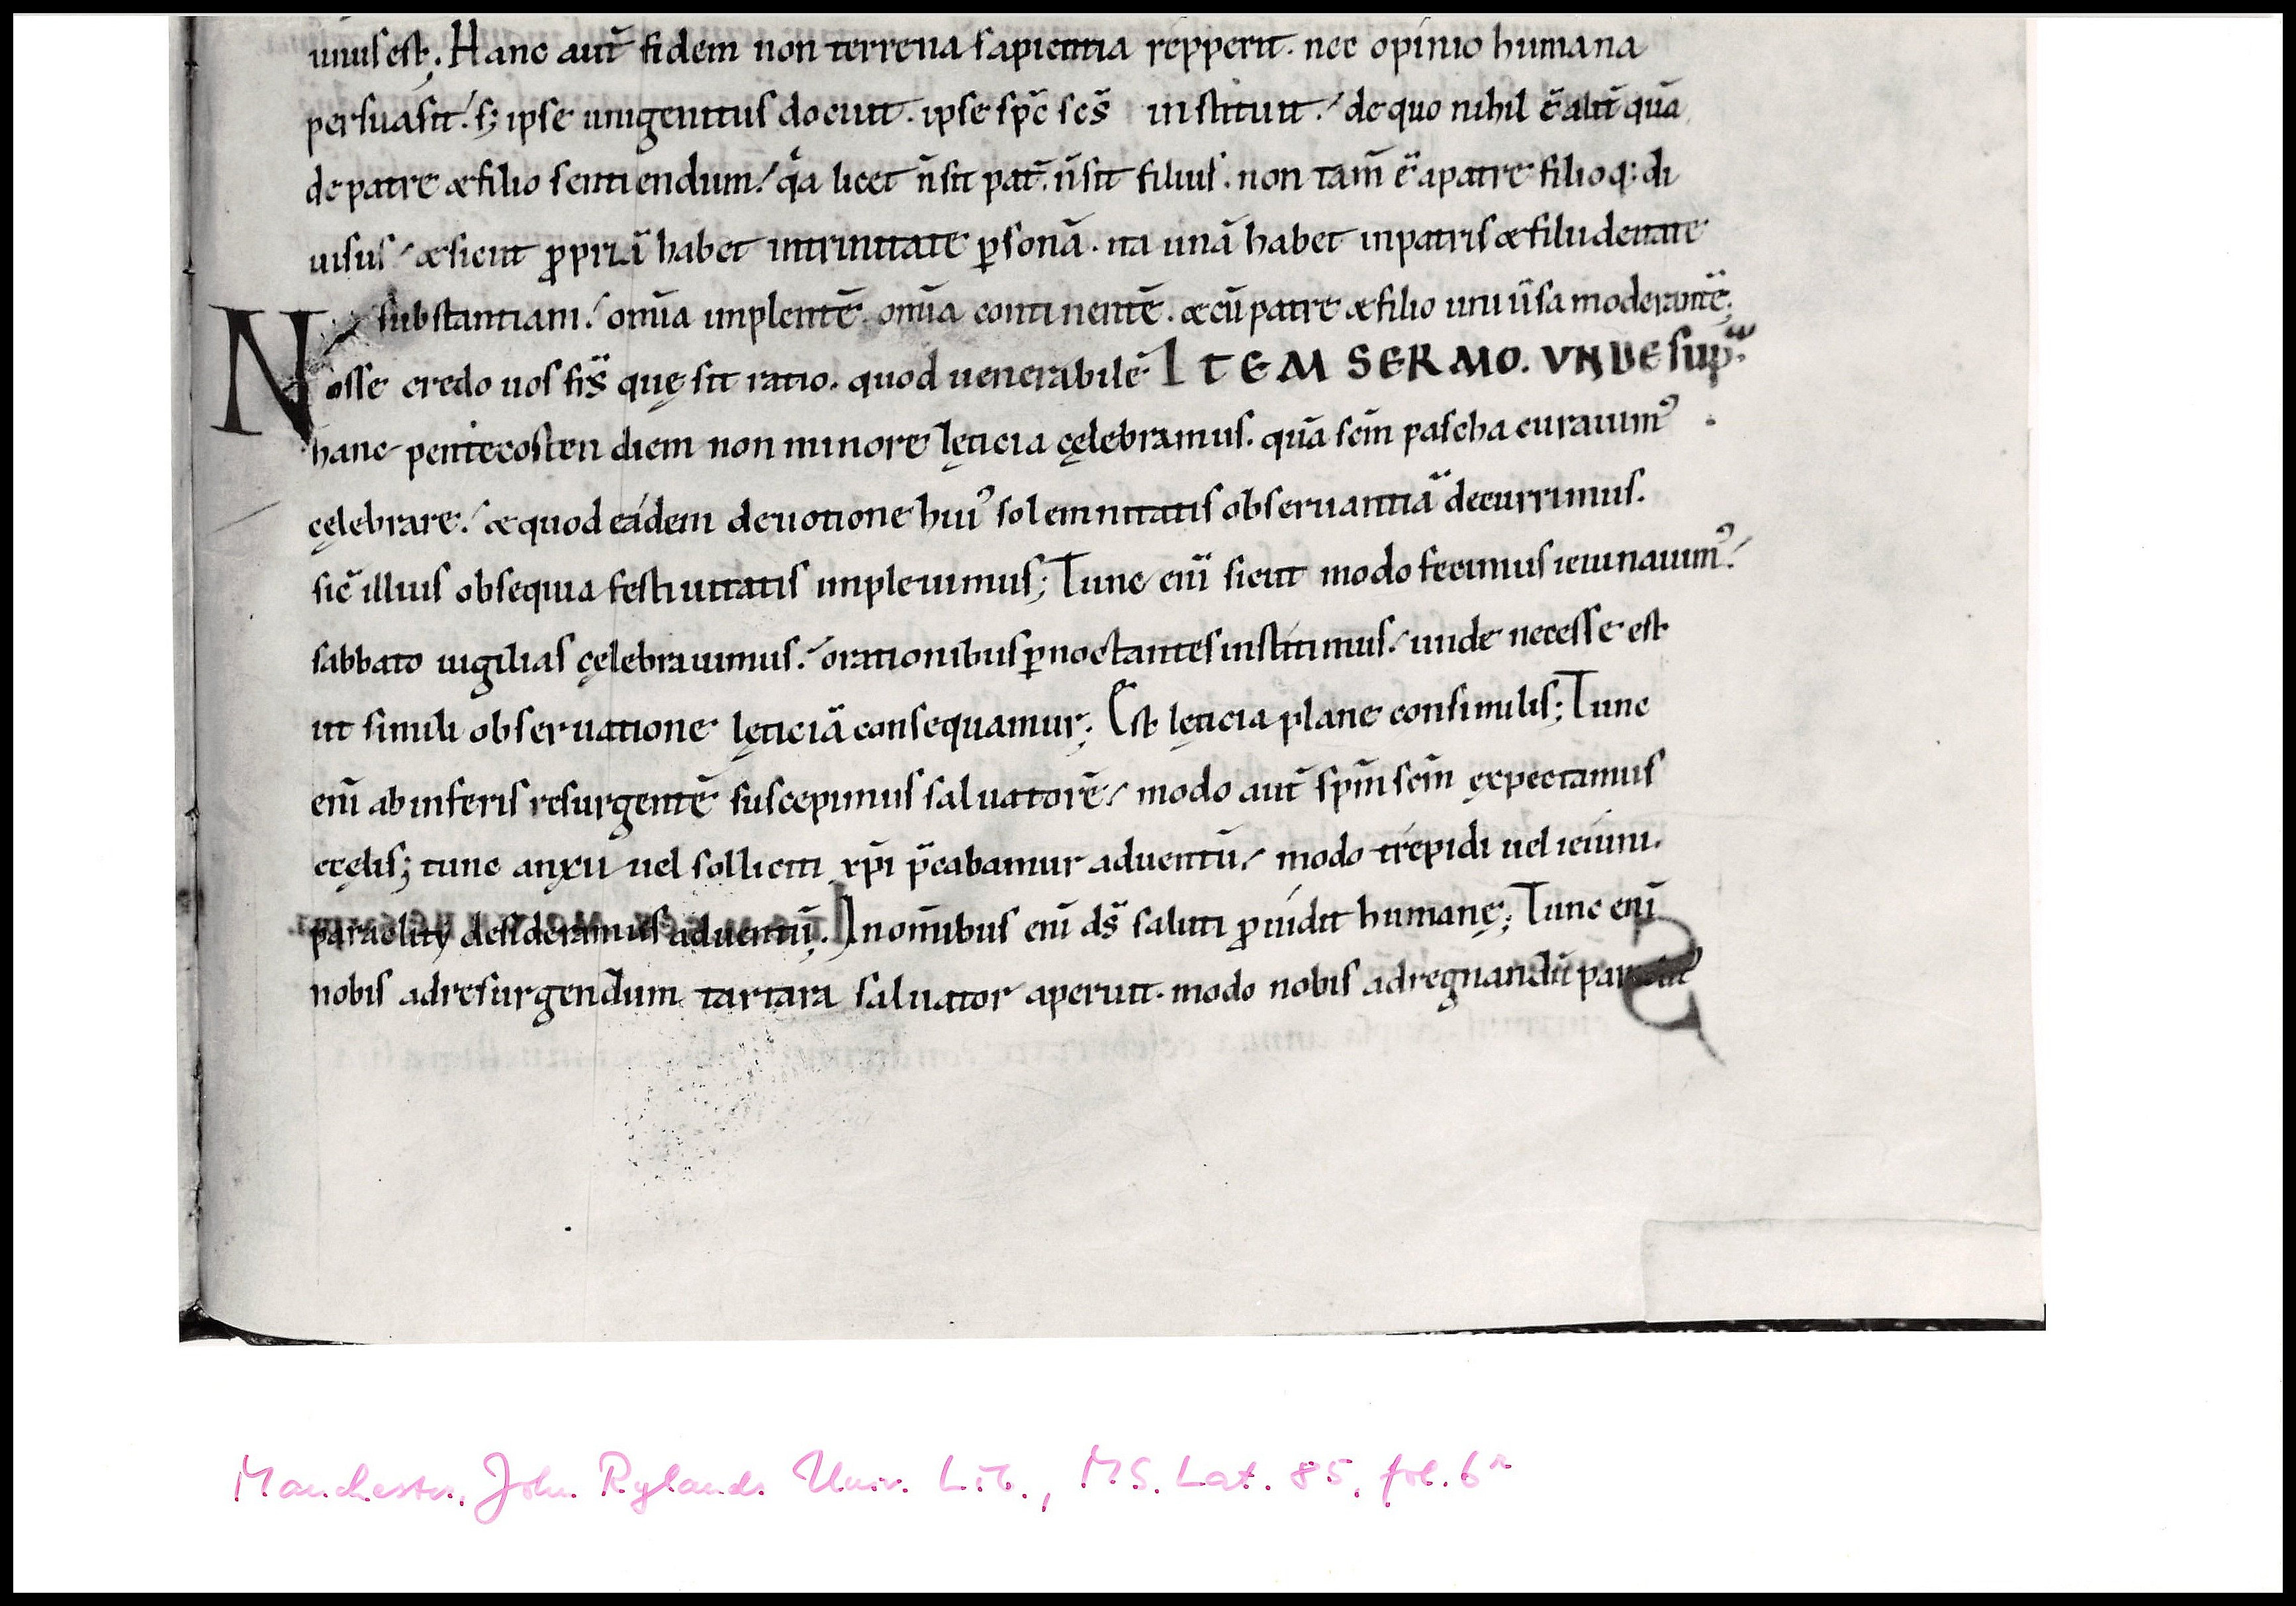 unus est; Hanc aut̄ fidem non terrena sapientia repperit. nec opinio humana
persuasit. s; ipse unigenitus docuit. ipse sp̄c sc̄s instituit. de quo nihil ē aliт̄ quā
de patre & filio sentiendum. qͥa licet n̄ sit pat̄. n̄ sit filius. non tam̄ ē a patre filioq: di
uisus. & sicut ꝓpriā habet in trinitate ꝑsonā. ita unā habet in patris & filii deitate
substantiam. om̄ia implentē. om̄ia continentē. & cū patre & filio uniūsa moderantē;
Nosse credo uos fr̄s quę sit ratio. quod uenerabilē ITEM SERMO. VNDE supͣ.
hanc pentecosten diem non minore lęticia cęlebramus. quā sc̄m pascha curauimꝰ
cęlebrare. & quod eadem deuotione huiꝰ solemnitatis obseruantiā decurrimus.
sic̄ illius obsequia festiuitatis impleuimus; Tunc eni̅ sicut modo fecimus ieiunauimꝰ.
sabbato uigilias cęlebrauimus. orationibus ꝑnoctantes institimus. unde necesse est
ut simili obseruatione lęticiā consequamur; Est lęticia plane consimilis; Tunc
eni̅ ab inferis resurgentē suscepimus saluatorē. modo aut̄ sp̄m sc̄m expectamus
e cęlis; tunc anxii uel solliciti xp̄i p̄cabamur aduentū. modo trepidi uel ieiuni.
paracliti desideramus aduentū. In om̄ibus eni̅ ds̄ saluti ꝓuidit humanę; Tunc eni̅
nobis ad resurgendum tartara saluator aperuit. modo nobis ad regnandū
Manchester, John Rylands Univ. Lib., MS. Lat. 85, fol. 6r